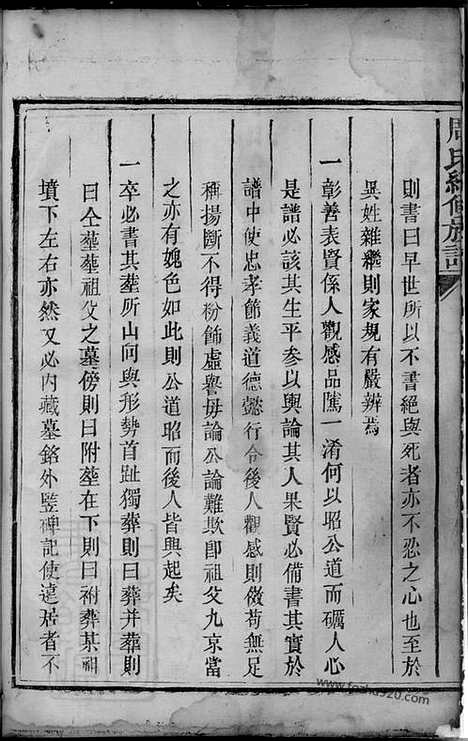 周氏續修族譜
則書曰早世所以不書絕與死者亦不忍之心也至於
異姓雜繼則家規有嚴辨焉
一彰善表賢係人觀感品隲一淆何以昭公道而礪人心
是譜必該其生平參以輿論其人果賢必備書其實於
譜中使忠孝節義道德懿行令後人觀感則儆苟無足
稱揚斷不得粉飾虛譽毋論公論難欺卽祖父九京當
之亦有媿色如此則公道昭而後人皆興起矣
一卒必書其葬所山向與形勢首趾獨葬則曰葬并葬則
曰仝葬葬祖父之墓傍則曰附葬在下則曰祔葬某祖
墳下左右亦然又必內藏墓銘外竪碑記使遠居者不
www.fozhu920.com